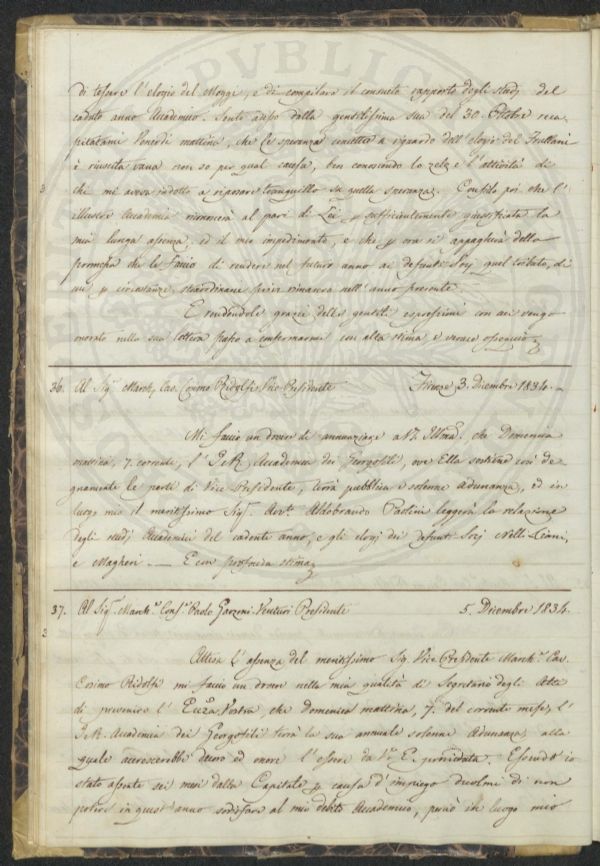 di tessere l'elogio del Moggi, e di compilare il consueto rapporto degli studj del
caduto anno Accademico. Sento adesso dalla gentilissima sua del 30. Ottobre reca-
pitatami Venerdi mattina, che le speranze concette a riguardo dell'elogio del Frullani
è riuscita vana non so per qual causa, ben conoscendo lo zelo e l'attività di
che mi aveva indotto a riposare tranquillo su quella speranza. Confido poi che l'
illustre Accademia rimarrà al pari di Lei p sufficientemente giustificata la
mia lunga assenza, ed il mio impedimento, e che p ora si appagherà della
promessa che le faccio di rendere nel futuro anno ai defunti Socj quel tributo, di
cui p circostanze straordinarie privi rimarran nell'anno presente.
E rendendole grazie delle gentili espressioni con cui vengo
onorato nella sua lettera passo a confermarmi con alta stima e verace ossequio
36. Al Sig.r March. Cav. Cosimo Ridolfi Vice Presidente Firenze 3. Dicembre 1834.
Mi faccio un dovere di annunziare a VS. Illma. che Domenica
mattina, 7. corrente, l' I. e R. Accademia dei Georgofili, ove Ella sostiene così de-
gnamente le parti di Vice Presidente, terrà pubblica e solenne adunanza, ed in
luogo mio il meritissimo Sig.r Avv.to Aldobrando Paolini leggerà la relazione
degli studj Accademici del cadente anno, e gli elogj dei defunti Socj Nelli, Ciani,
e Magheri. — E con profonda stima
37. Al Sig.r March.e Cons.e Paolo Garzoni Venturi Presidente 5. Dicembre 1834.
Attesa l'assenza del meritissimo Sig. Vice Presidente March.e Cav.
Cosimo Ridolfi mi faccio un dovere nella mia qualità di Segretario degli Atti
di prevenire l' Ecc.za Vostra, che domenica mattina, 7. del corrente mese, l'
I. e R. Accademia dei Georgofili terrà la sua annuale solenne Adunanza, alla
quale accrescerebbe decoro ed onore l'essere da V.a E. presieduta. Essendo io
stato assente sei mesi dalla Capitale p causa d'impiego duolmi di non
potere in quest'anno sodisfare al mio debito Accademico, perciò in luogo mio